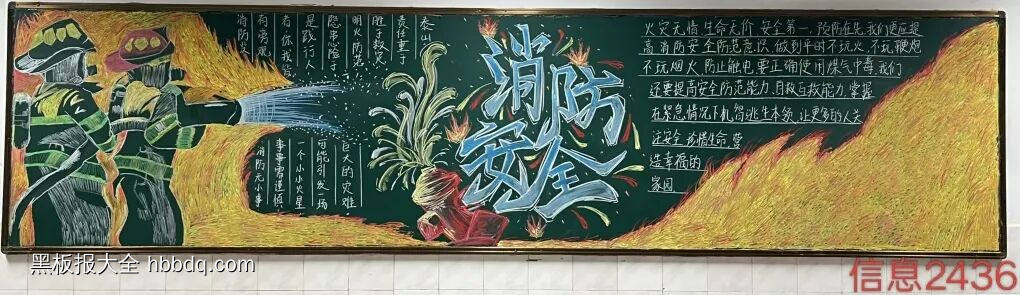 消防没
有旁观
者你我皆
是践行人
隐患险于
明火防范
胜于救灾
责任重于
泰山
消防无小事
事事需谨慎
一个小小火星
可能引发一场
巨大的灾难
消防
安全
火灾无情,生命无价,安全第一,预防在先,我们更应提
高消防安全防范意识,做到平时不玩火,不玩鞭炮
不玩烟火,防止触电,要正确使用煤气中毒,我们
还要提高安全防范能力,自救互救能力,掌握
在紧急情况下机智逃生本领,让更多的人关
注安全 珍惜生命 营
造幸福的
家园
黑板报大全 hbbdq.com
信息2436